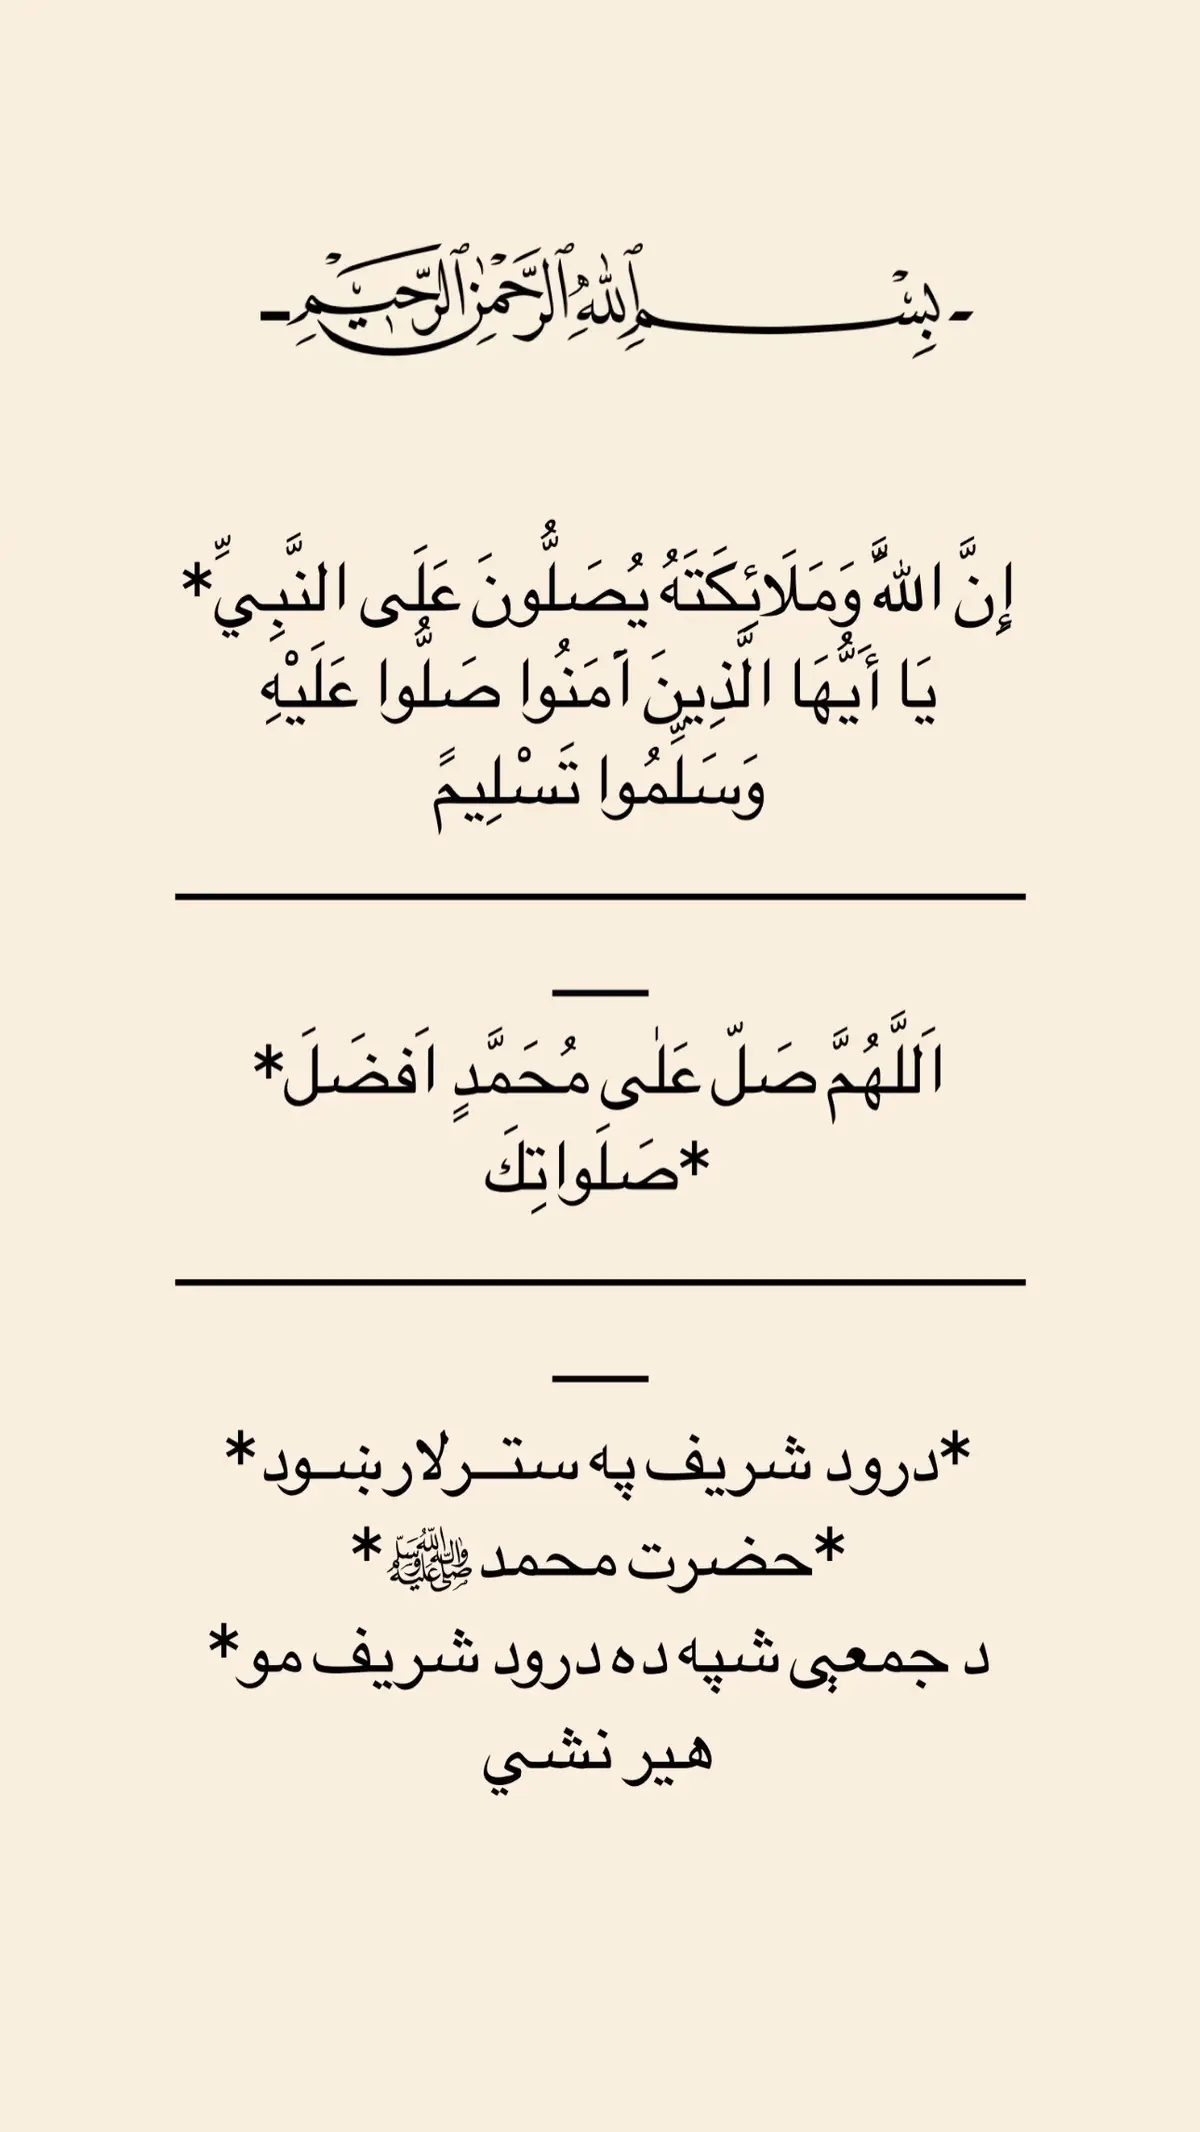 -بِسْـــــــــمِ ٱللهِ ٱلرَّحْمٰنِ ٱلرَّحِيمِ-
إِنَّ اللهَّ وَمَلَائِكَتَهُ يُصَلُّونَ عَلَى النَّبِيِّ*
يَا أَيُّهَا الَّذِينَ آَمَنُوا صَلُّوا عَلَيْهِ
وَسَلِّمُوا تَسْلِيمً
اَللَّهُمَّ صَلّ عَلٰى مُحَمَّدٍ اَفضَلَ*
*صَلَواتِكَ
*درود شریف په ستــرلارښـود*
*حضرت محمدﷺ*
د جمعې شپه ده درود شریف مو*
هیر نشي